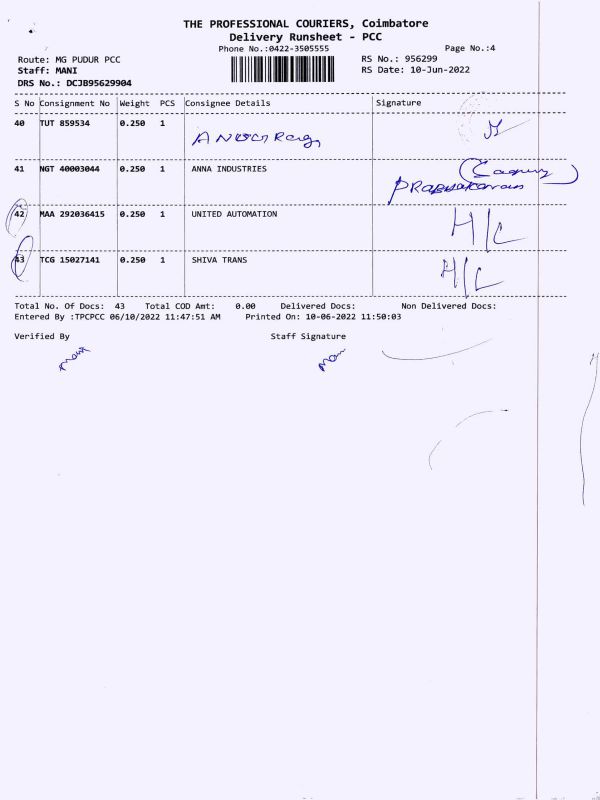 THE PROFESSIONAL COURIERS, Coimbatore
Delivery Runsheet - PCC
Phone No.:0422-3505555
Page No.:4
Route: MG PUDUR PCC
RS No.: 956299
Staff: MANI
RS Date: 10-Jun-2022
DRS No.: DCJB95629904
S No Consignment No Weight PCS Consignee Details Signature
40 TUT 859534 0.250 1
41 NGT 40003044 0.250 1 ANNA INDUSTRIES
PRABHAKARAN
42 MAA 292036415 0.250 1 UNITED AUTOMATION H/L
43 TCG 15027141 0.250 1 SHIVA TRANS H/L
Total No. Of Docs: 43 Total COD Amt: 0.00 Delivered Docs: Non Delivered Docs:
Entered By :TPCPCC 06/10/2022 11:47:51 AM Printed On: 10-06-2022 11:50:03
Verified By Staff Signature
Mani Mani